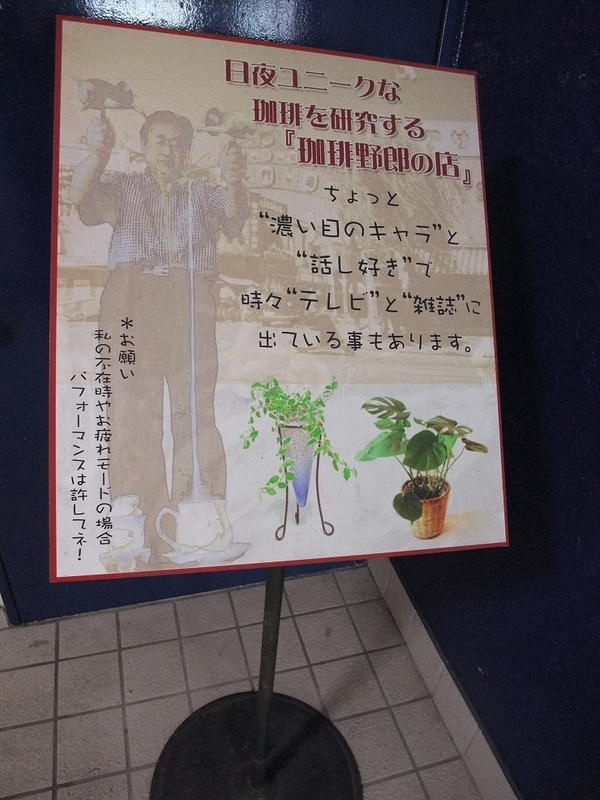 日夜ユニークな
珈琲を研究する
『珈琲野郎の店』
ちょっと
“濃い目のキャラ”と
“話し好き”で
時々“テレビ”と“雑誌”に
出ている事もあります。
＊お願い
私の不在時やお疲れモードの場合
パフォーマンスは許してネ！